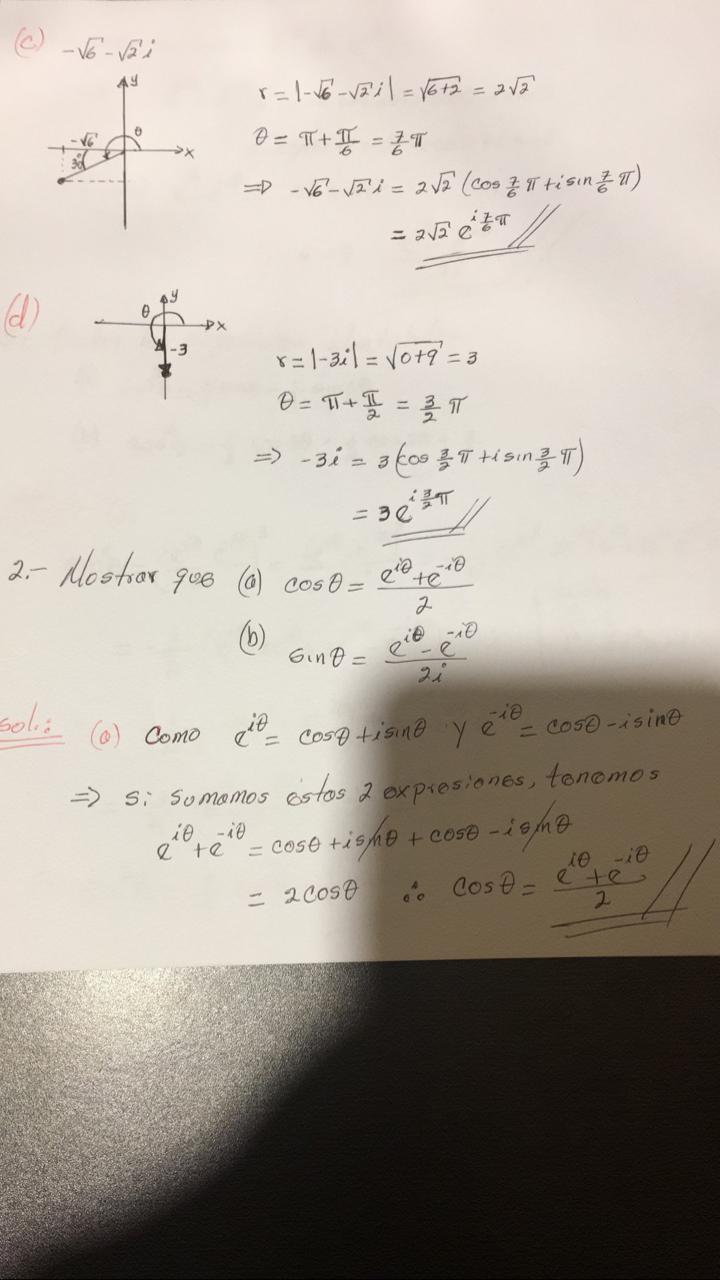 (c) -√6 - √2 i
y
-√6 θ
x
30°
r = |-√6 - √2 i| = √(6+2) = 2√2
θ = π + π/6 = 7/6 π
=> -√6 - √2 i = 2√2 (cos 7/6 π + i sin 7/6 π)
= 2√2 e^(i 7/6 π)
(d)
y
θ
x
-3
r = |-3i| = √(0+9) = 3
θ = π + π/2 = 3/2 π
=> -3i = 3(cos 3/2 π + i sin 3/2 π)
= 3 e^(i 3/2 π)
2.- Mostrar que (a) cosθ = (e^(iθ) + e^(-iθ))/2
(b) sinθ = (e^(iθ) - e^(-iθ))/2i
Sol: (a) Como e^(iθ) = cosθ + i sinθ y e^(-iθ) = cosθ - i sinθ
=> si sumamos estas 2 expresiones, tenemos
e^(iθ) + e^(-iθ) = cosθ + i sinθ + cosθ - i sinθ
= 2cosθ ∴ cosθ = (e^(iθ) + e^(-iθ))/2